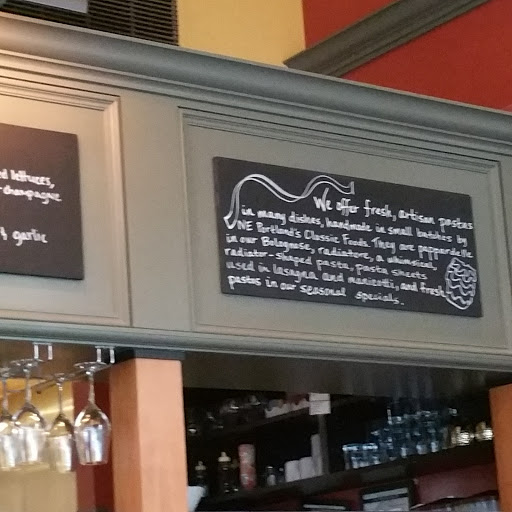 ed lettuces,
champagne
garlic
We offer fresh, artisan pastas
in many dishes, handmade in small batches by
NE Portland's Classic Foods. They are pappardelle
in our Bolognase, radiatore, a whimsical,
radiator-shaped pasta, pasta sheets
used in lasagna and manicotti, and fresh
pastas in our seasonal specials.